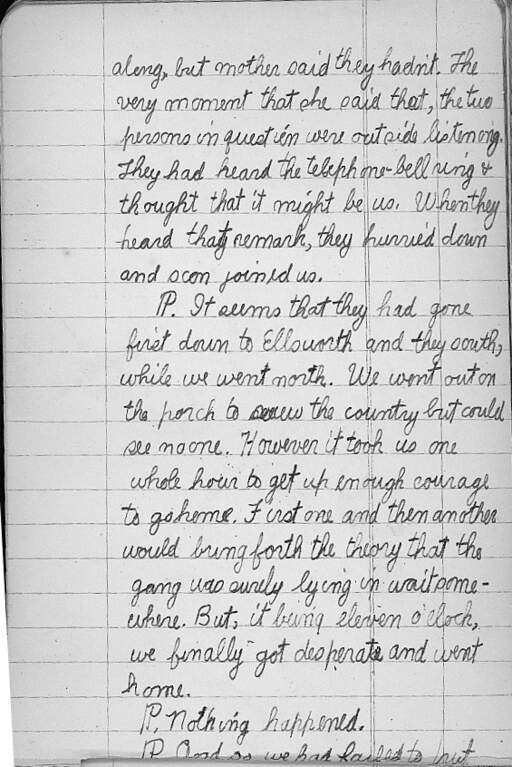 along, but mother said they hadn't. The
very moment that she said that, the two
persons in question were outside listening.
They had heard the telephone-bell ring &
thought that it might be us. When they
heard that remark, they hurried down
and soon joined us.
P. It seems that they had gone
first down to Ellsworth and they south,
while we went north. We went out on
the porch to the country but could
see no one. However it took us one
whole hour to get up enough courage
to go home. First one and then another
would bring forth the theory that the
gang was surely lying in wait some-
where. But, it being eleven o'clock,
we finally got desperate and went
home.
P. Nothing happened.
P. And as we had failed to put